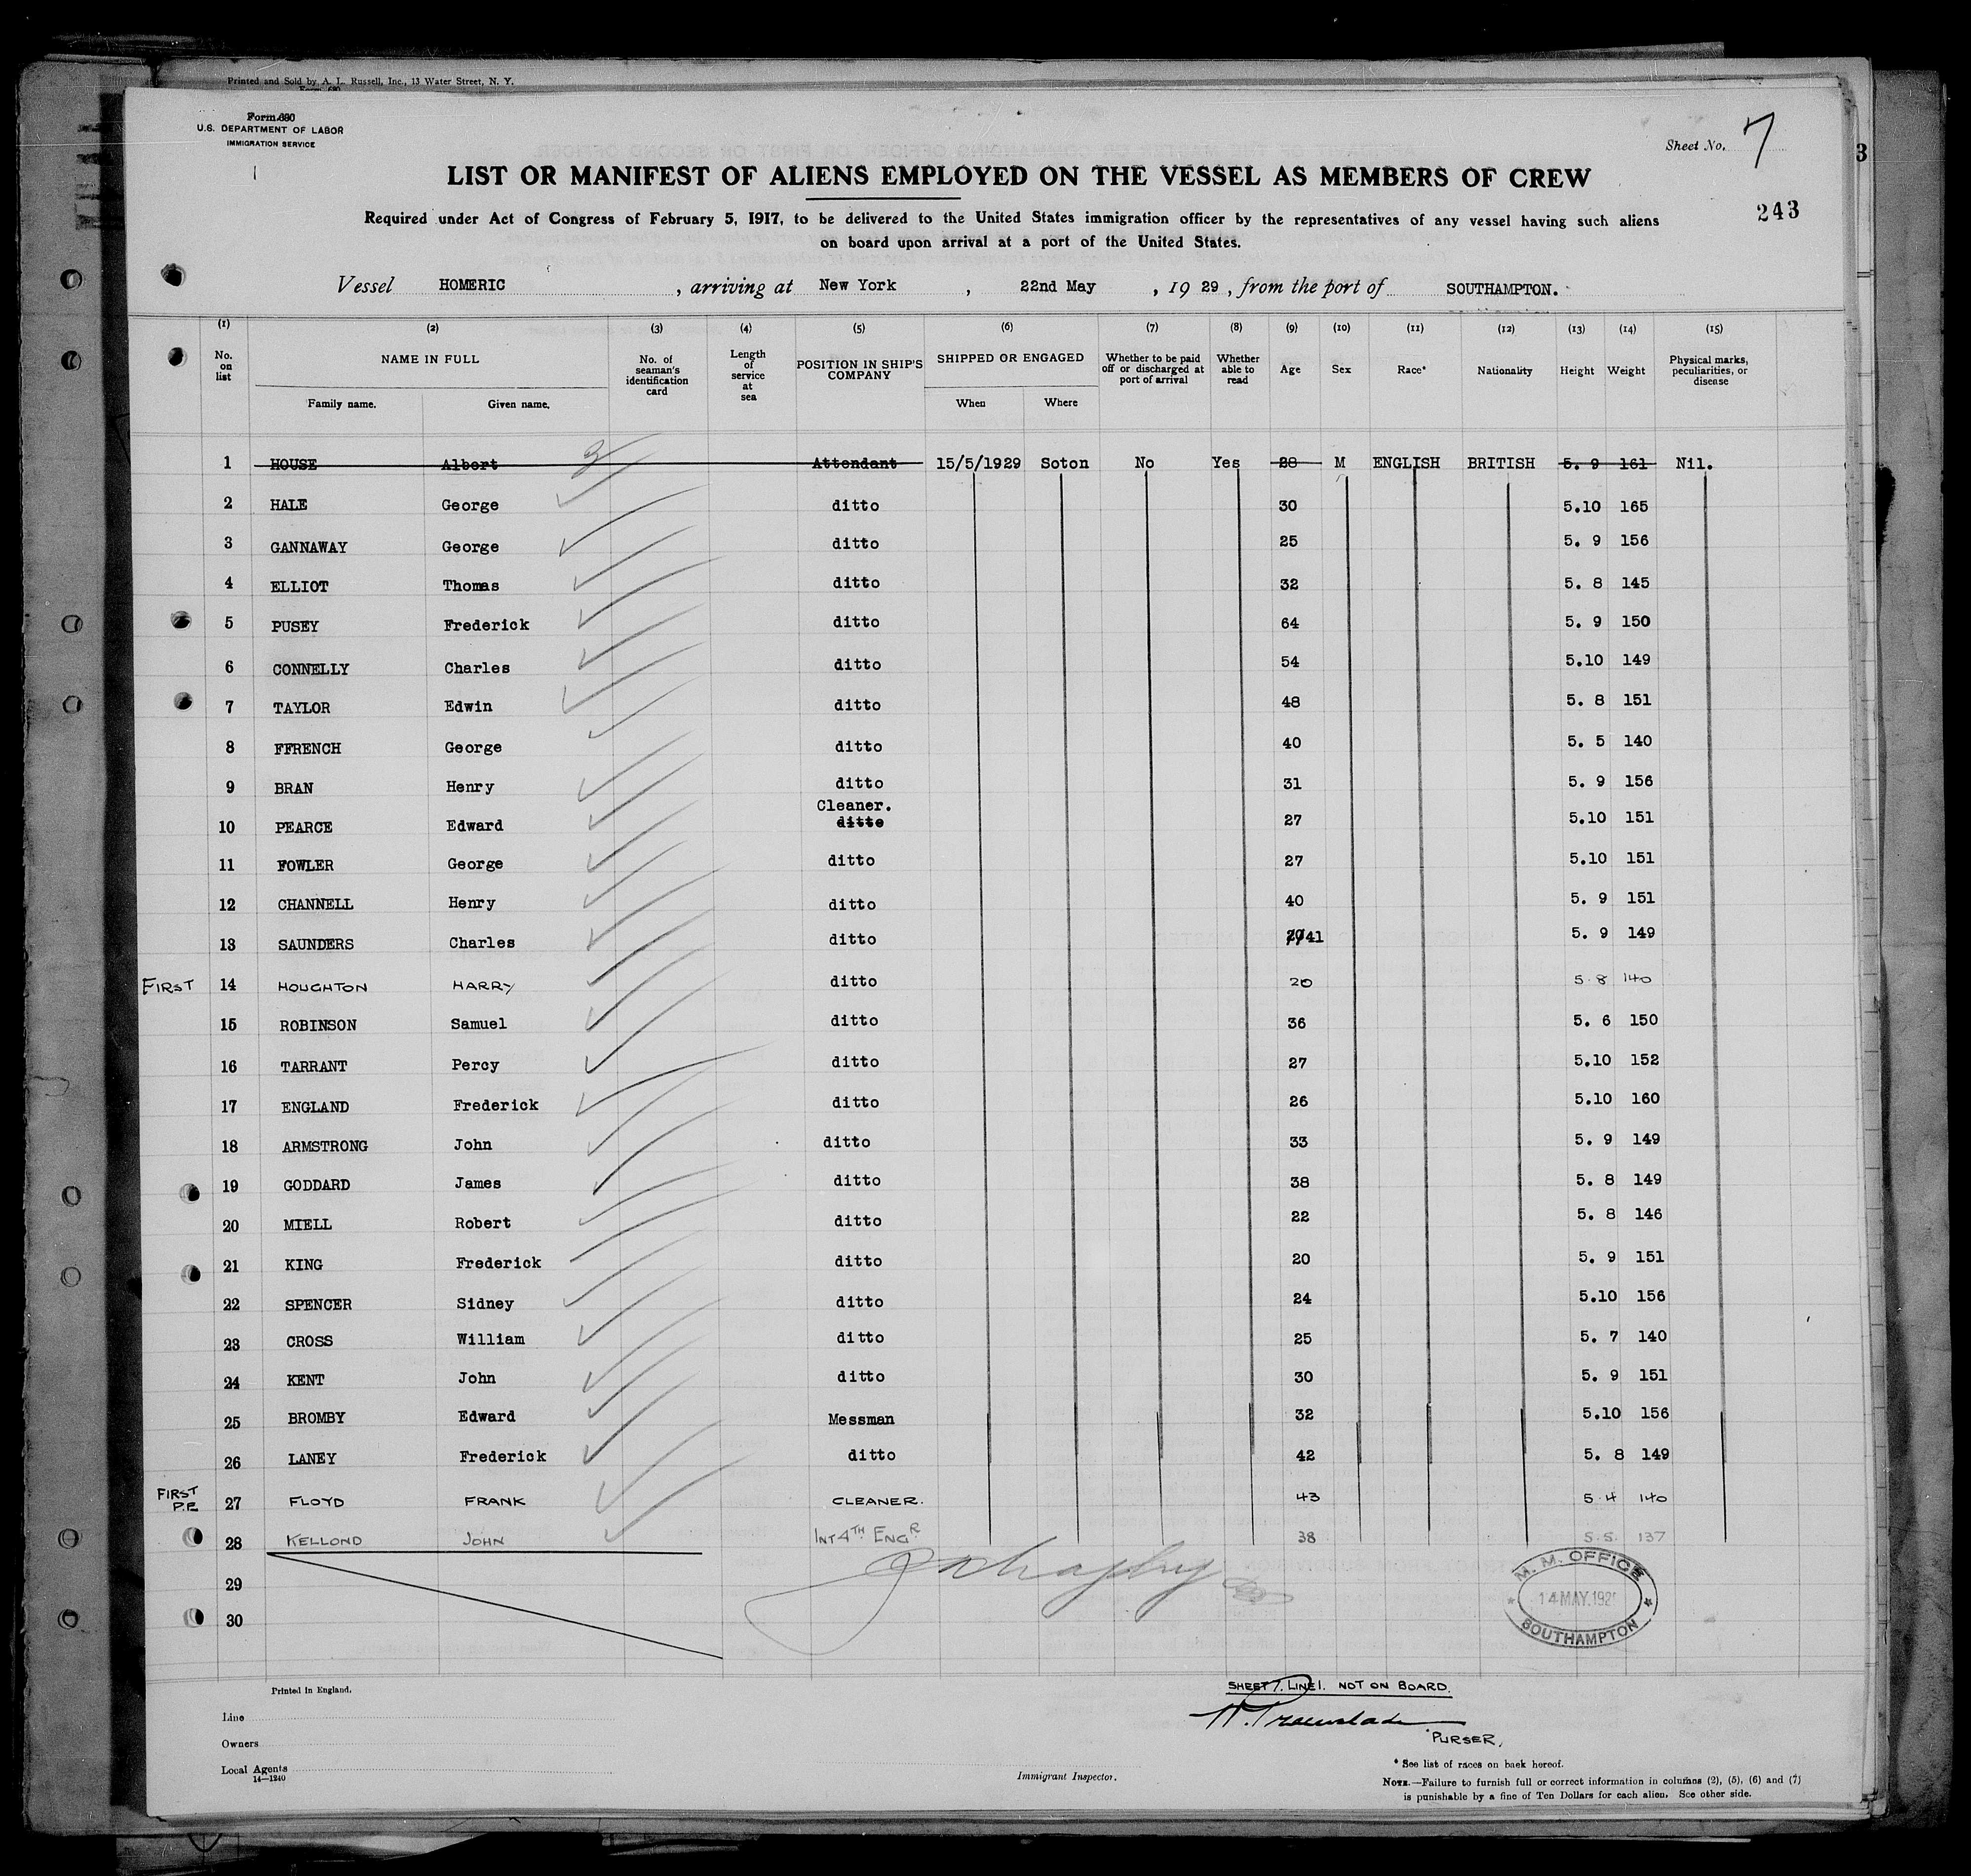 Printed and Sold by A. L. Russell, Inc., 13 Water Street, N. Y.
Form 680
Form 680
U.S. DEPARTMENT OF LABOR
IMMIGRATION SERVICE
Sheet No. 7
3
LIST OR MANIFEST OF ALIENS EMPLOYED ON THE VESSEL AS MEMBERS OF CREW
243
Required under Act of Congress of February 5, 1917, to be delivered to the United States immigration officer by the representatives of any vessel having such aliens
on board upon arrival at a port of the United States.
Vessel HOMERIC, arriving at New York, 22nd May, 1929, from the port of SOUTHAMPTON.
(1) (2) (3) (4) (5) (6) (7) (8) (9) (10) (11) (12) (13) (14) (15)
No. on list NAME IN FULL Family name. Given name. No. of seaman's identification card Length of service at sea POSITION IN SHIP'S COMPANY SHIPPED OR ENGAGED When Where Whether to be paid off or discharged at port of arrival Whether able to read Age Sex Race* Nationality Height Weight Physical marks, peculiarities, or disease
1 HOUSE Albert 3 Attendant 15/5/1929 Soton No Yes 28 M ENGLISH BRITISH 5. 9 161 Nil.
2 HALE George ditto 30 5.10 165
3 GANNAWAY George ditto 25 5. 9 156
4 ELLIOT Thomas ditto 32 5. 8 145
5 PUSEY Frederick ditto 64 5. 9 150
6 CONNELLY Charles ditto 54 5.10 149
7 TAYLOR Edwin ditto 48 5. 8 151
8 FFRENCH George ditto 40 5. 5 140
9 BRAN Henry ditto 31 5. 9 156
Cleaner.
10 PEARCE Edward ditto 27 5.10 151
11 FOWLER George ditto 27 5.10 151
12 CHANNELL Henry ditto 40 5. 9 151
13 SAUNDERS Charles ditto 41 5. 9 149
FIRST 14 HOUGHTON HARRY ditto 20 5.8 140
15 ROBINSON Samuel ditto 36 5. 6 150
16 TARRANT Percy ditto 27 5.10 152
17 ENGLAND Frederick ditto 26 5.10 160
18 ARMSTRONG John ditto 33 5. 9 149
19 GODDARD James ditto 38 5. 8 149
20 MIELL Robert ditto 22 5. 8 146
21 KING Frederick ditto 20 5. 9 151
22 SPENCER Sidney ditto 24 5.10 156
23 CROSS William ditto 25 5. 7 140
24 KENT John ditto 30 5. 9 151
25 BROMBY Edward Messman 32 5.10 156
26 LANEY Frederick ditto 42 5. 8 149
FIRST P.P. 27 FLOYD FRANK CLEANER. 43 5.4 140
28 KELLOND JOHN INT 4TH ENGR 38 5.5. 137
29
30
M. M. OFFICE
14 MAY. 192
SOUTHAMPTON
SHEET 7. LINE 1. NOT ON BOARD.
PURSER.
Printed in England.
Line
Owners
Local Agents
14—1240
Immigrant Inspector.
* See list of races on back hereof.
NOTE.—Failure to furnish full or correct information in columns (2), (5), (6) and (7)
is punishable by a fine of Ten Dollars for each alien. See other side.